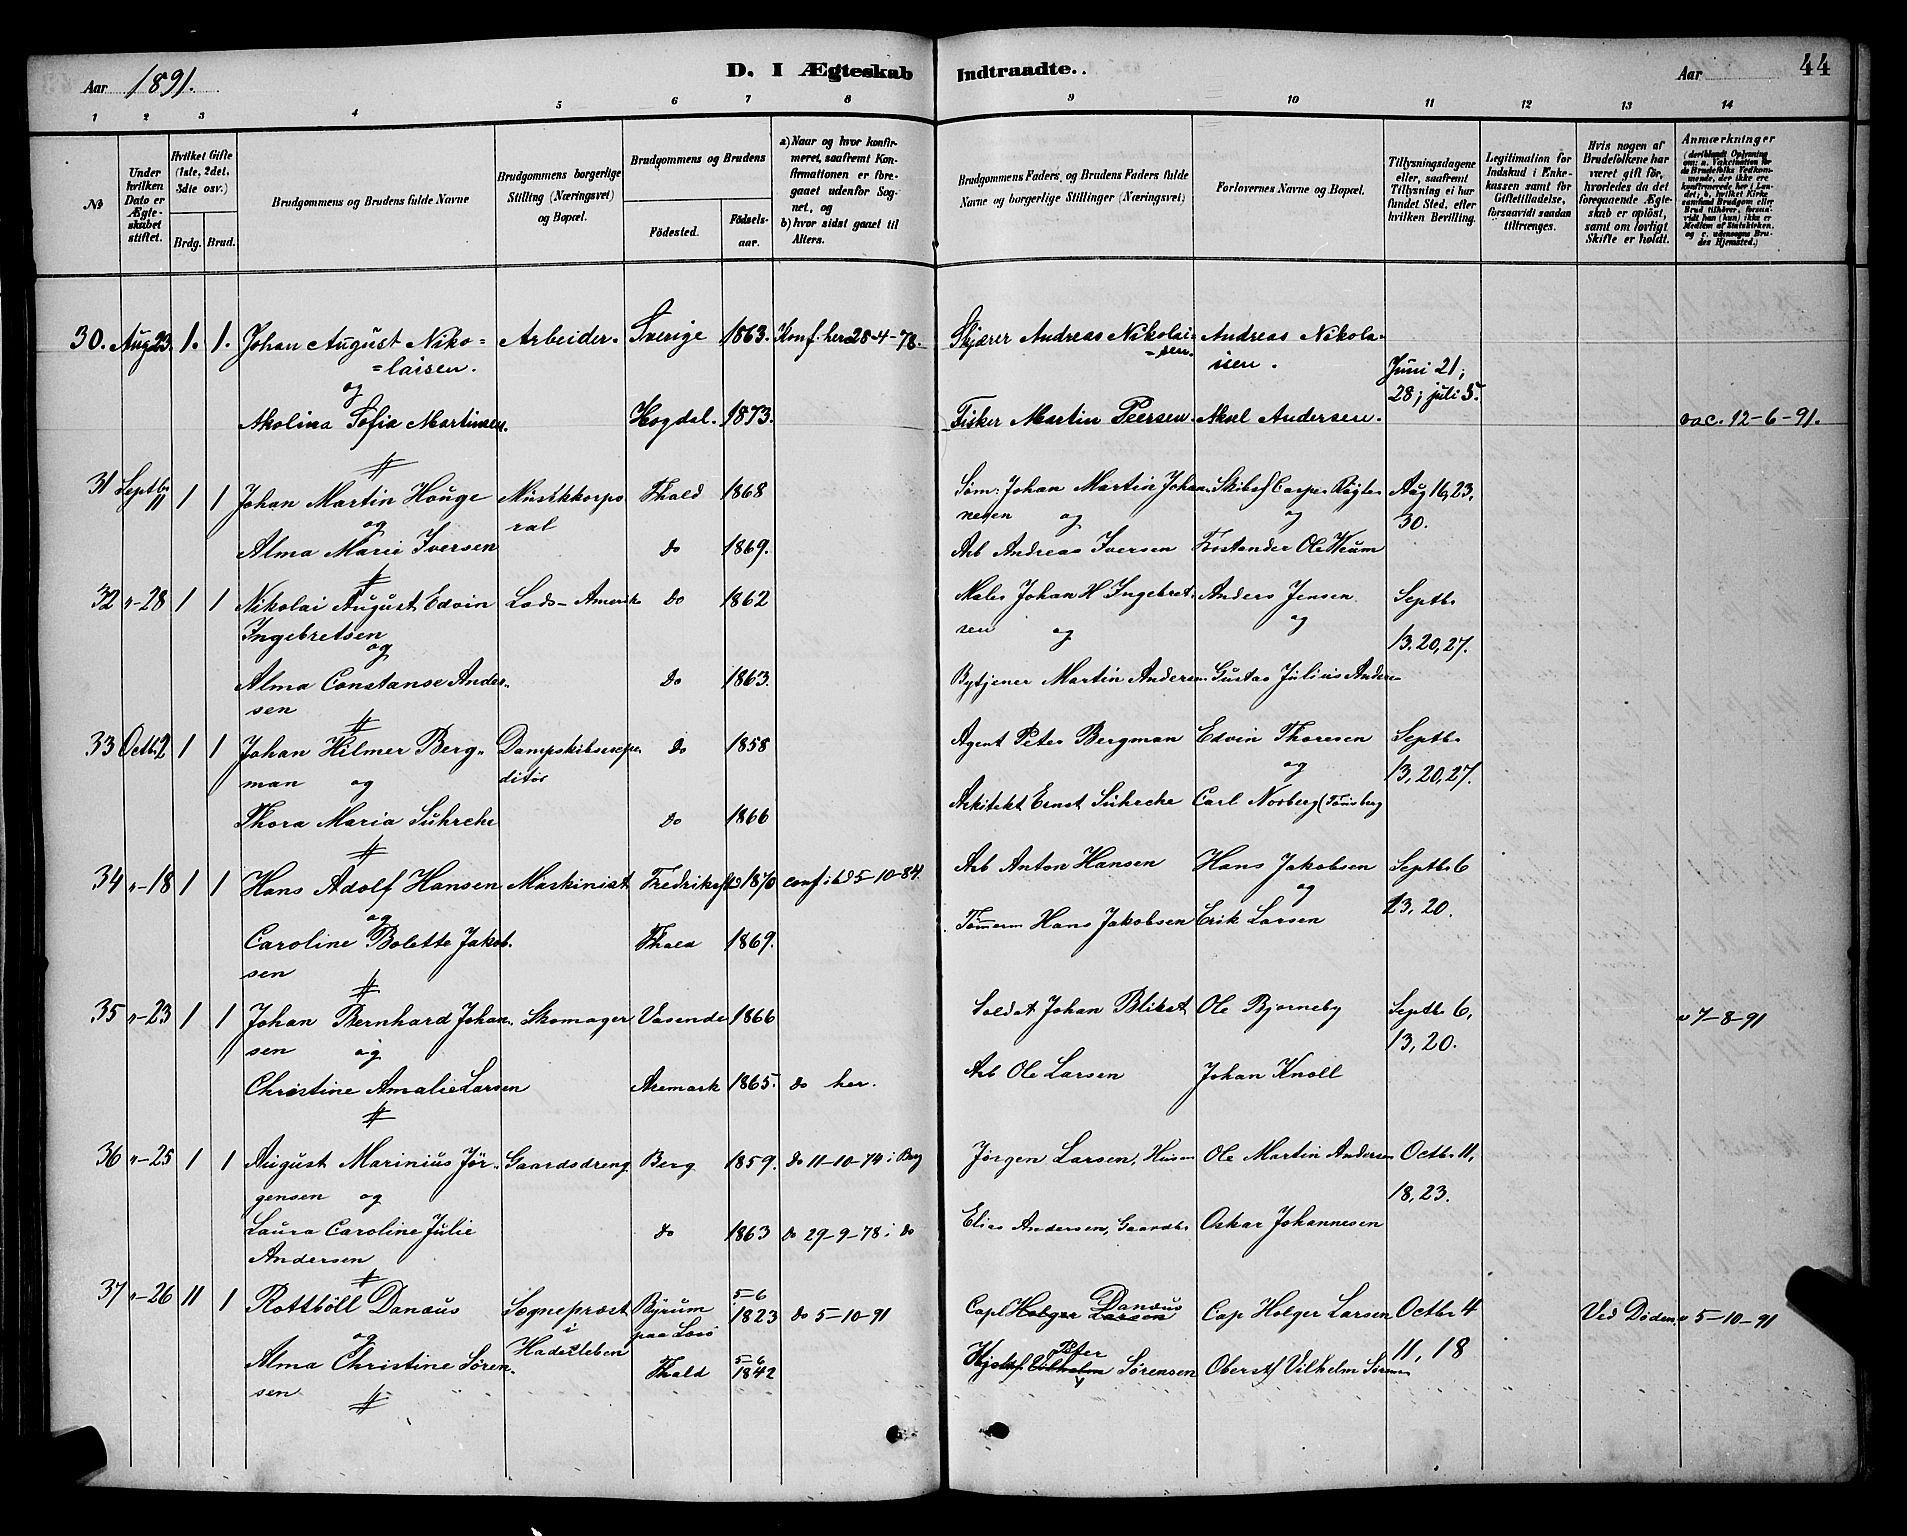 Aar 1891.
D. I Ægteskab Indtraadte.
Aar
44
1 2 3 4 5 6 7 8 9 10 11 12 13 14
No
Under hvilken Dato er Ægteskabet stiftet.
Hvilket Gifte (1ste, 2det, 3die osv.)
Brdg. Brud.
Brudgommens og Brudens fulde Navne
Brudgommens borgerlige Stilling (Næringsvei) og Bopæl.
Brudgommens og Brudens
Fødested. Fødselsaar.
a) Naar og hvor konfirmeret, saafremt Konfirmationen er foregaaet udenfor Sognet, og
b) hvor sidst gaaet til Alters.
Brudgommens Faders, og Brudens Faders fulde Navne og borgerlige Stillinger (Næringsvei)
Forlovernes Navne og Bopæl.
Tillysningsdagene eller, saafremt Tillysning ei har fundet Sted, efter hvilken Bevilling.
Legitimation for Indskud i Enkekassen samt for Giftetilladelse, forsaavidt saadan tiltrænges.
Hvis nogen af Brudefolkene har været gift før, hvorledes da det foregaaende Ægteskab er opløst, samt om lovligt Skifte er holdt.
Anmærkninger
(deriblandt Oplysning om: a. Vakcinationen for de Brudefolks Vedkommende, der ikke ere konfirmerede her i Landet; b. hvilket Kirkesamfund Brudgom eller Brud tilhører, forsaavidt han (hun) ikke er Medlem af Statskirken, og c. udensogns Brudes Hjemsted.)
30. Aug 23. 1. 1. Johan August Niko= Arbeider. Sverige 1863. Konf. her 28-4-78. Skjærer Andreas Nikolai= Andreas Nikola-
=laisen. =sen. isen.
og Juni 21;
28; juli 5.
Akolina Sofia Martinsen. Hogdal. 1873. Fisker Martin Peersen. Aksel Andersen. vac. 12-6-91.
31 Septbr 11 1 1 Johan Martin Houge Musikkorpo Fhald 1868 Søm: Johan Martin Johan Skibsf Casper Røgles Aug 16, 23,
og ral nesen og og 30.
Alma Marie Iversen do 1869. Arb Andreas Iversen Forstander Ole Kium
32 "-28 1 1 Nikolai August Edvin Lods- Amerik do 1862 Maler Johan H Ingebret Anders Jensen Septbr
Ingebretsen sen og og 13, 20, 27.
og
Alma Constanse Ander- do 1863. Bytjener Martin Andersen Gustav Julius Ander-
sen
33 Octb. 2 1 1 Johan Hilmer Berg- Dampskibsexpe do 1858 Agent Peter Bergman Edvin Thoresen Septbr
man og ditør og 13, 20, 27.
Thora Maria Suhrche do 1866 Arkitekt Ernst Suhrche Carl Norberg (Tønsberg
34 "-18 1 1 Hans Adolf Hansen Maskinist Fredriksstd 1870 conf ibd 5-10-84. Arb Anton Hansen Hans Jakobsen Septbr 6
og og 13, 20.
Caroline Bolette Jakob- Fhald 1869. Tømerm Hans Jakobsen Erik Larsen
sen
35 "-23 1 1 Johan Bernhard Johan- Skomager Vasende 1866 Soldat Johan Blikst Ole Bjorneby Septbr 6, v 7-8-91
sen og 13, 20.
Christine Amalie Larsen Aremark 1865. do her. Arb Ole Larsen Johan Knoll
36 "-25 1 1 August Marinius Jør- Gaardsdreng Berg 1859. do 11-10-74 i Berg Jørgen Larsen, Husm Ole Martin Andersen Octbr 11,
gensen og 18, 23.
Laura Caroline Julie do 1863 do 29-9-78 i do Elias Andersen, Gaardbr Oskar Johannesen
Andersen
37 "-26 11 1 Rottböll Danæus Sognepræst Byrum 5-6 1823 do 5-10-91 Capt Holger Larsen Danæus Cap Holger Larsen Octbr 4 Ved Døden v 5-10-91
og i paa Læsø 11, 18
Hadersleben
Alma Christine Søren- Fhald 5-6 1842 Vilhelm Peter Sørensen Oberst Vilhelm Sørensen
sen